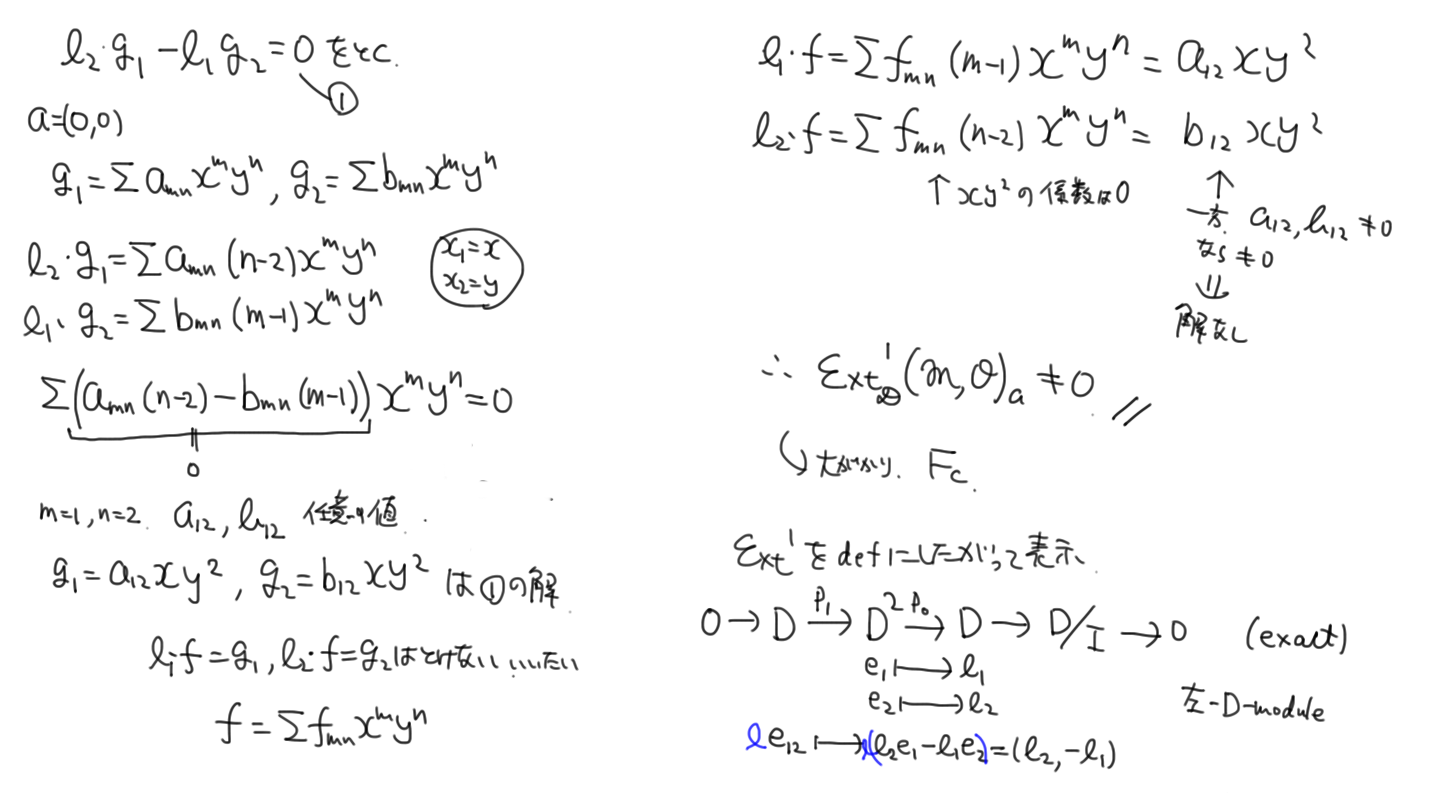 l₂·g₁ − l₁g₂ = 0 をとく.
①
a=(0,0)
g₁ = Σ aₘₙxᵐyⁿ, g₂ = Σ bₘₙxᵐyⁿ
l₂·g₁ = Σ aₘₙ (n-2) xᵐyⁿ
l₁·g₂ = Σ bₘₙ (m-1) xᵐyⁿ
x₁=x
x₂=y
Σ(aₘₙ(n-2) − bₘₙ(m-1)) xᵐyⁿ = 0
0
m=1, n=2. a₁₂, b₁₂ 任意の値.
g₁ = a₁₂xy², g₂ = b₁₂xy² は①の解
l₁·f = g₁, l₂·f = g₂ はとけないといいたい
f = Σ fₘₙxᵐyⁿ
l₁·f = Σ fₘₙ (m-1) xᵐyⁿ = a₁₂ xy²
l₂·f = Σ fₘₙ (n-2) xᵐyⁿ = b₁₂ xy²
↑ xy² の係数は0
↑
一方 a₁₂, b₁₂ ≠ 0
なら ≠ 0
⇓
解なし
∴ Ext¹_D(M, O)ₐ ≠ 0 //
F_c.
Ext¹ を def にしたがって表示.
0 → D →^{P₁} D² →^{P₀} D → D/I → 0 (exact)
e₁ ↦ l₁
e₂ ↦ l₂
左-D-module
l e₁₂ ↦ l(l₂e₁ − l₁e₂) = (l₂, −l₁)